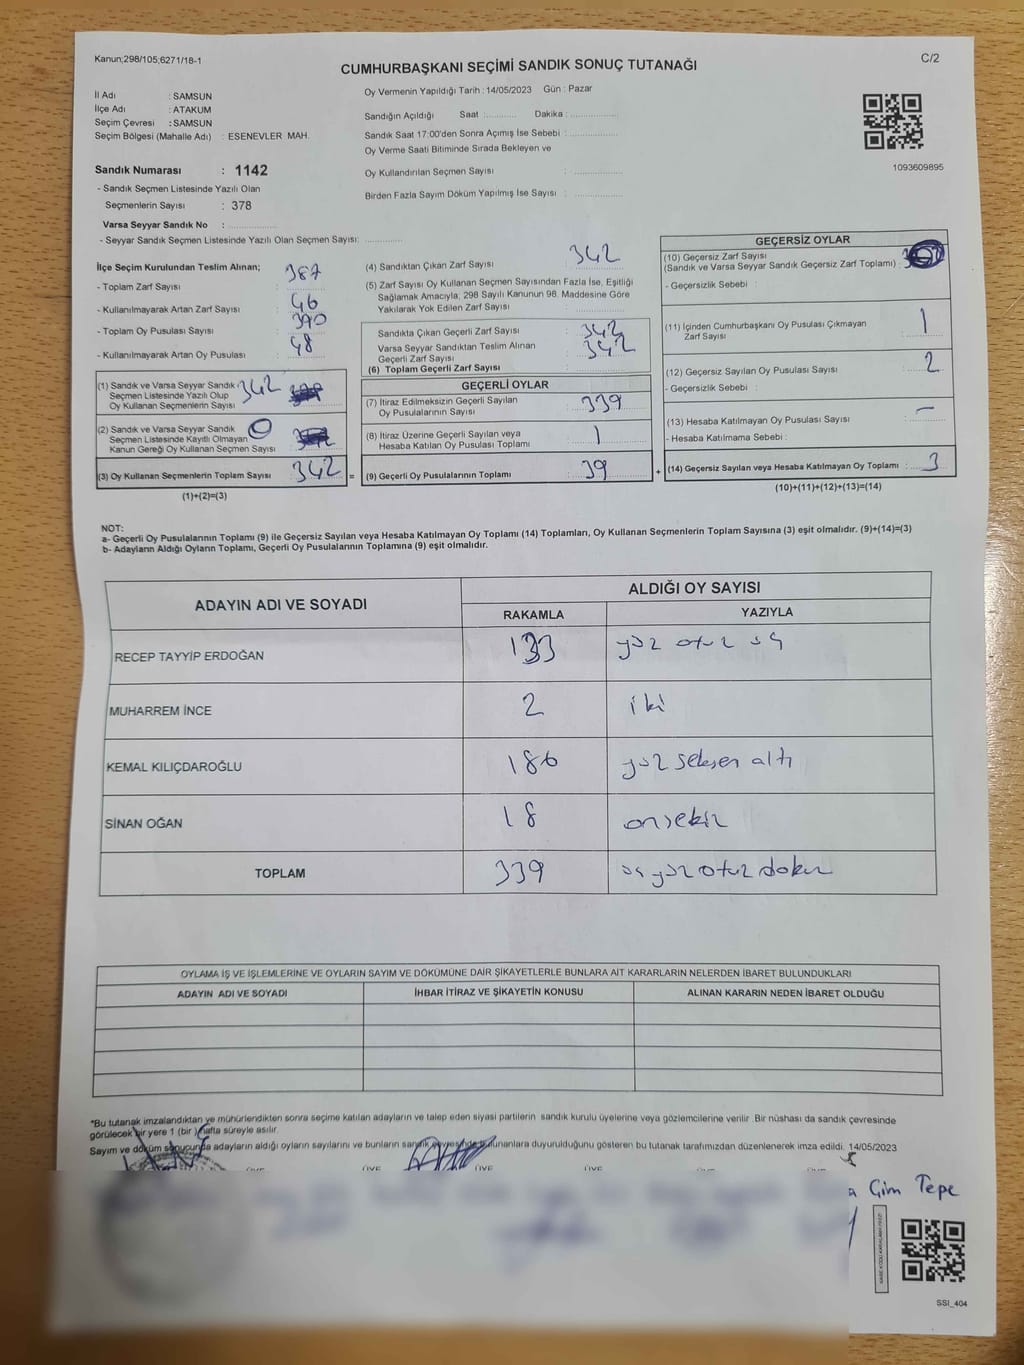 Kanun;298/105;6271/18-1
C/2
CUMHURBAŞKANI SEÇİMİ SANDIK SONUÇ TUTANAĞI
İl Adı : SAMSUN
İlçe Adı : ATAKUM
Seçim Çevresi : SAMSUN
Seçim Bölgesi (Mahalle Adı) : ESENEVLER MAH.
Sandık Numarası : 1142
- Sandık Seçmen Listesinde Yazılı Olan
Seçmenlerin Sayısı : 378
Varsa Seyyar Sandık No :
- Seyyar Sandık Seçmen Listesinde Yazılı Olan Seçmen Sayısı:
Oy Vermenin Yapıldığı Tarih : 14/05/2023 Gün : Pazar
Sandığın Açıldığı Saat Dakika :
Sandık Saat 17:00'den Sonra Açımış İse Sebebi :
Oy Verme Saati Bitiminde Sırada Bekleyen ve
Oy Kullandırılan Seçmen Sayısı :
Birden Fazla Sayım Döküm Yapılmış İse Sayısı :
1093609895
İlçe Seçim Kurulundan Teslim Alınan;
- Toplam Zarf Sayısı : 387
- Kullanılmayarak Artan Zarf Sayısı : 46
- Toplam Oy Pusulası Sayısı : 390
- Kullanılmayarak Artan Oy Pusulası : 48
(1) Sandık ve Varsa Seyyar Sandık 342
Seçmen Listesinde Yazılı Olup
Oy Kullanan Seçmenlerin Sayısı
(2) Sandık ve Varsa Seyyar Sandık 0
Seçmen Listesinde Kayıtlı Olmayan
Kanun Gereği Oy Kullanan Seçmen Sayısı
(3) Oy Kullanan Seçmenlerin Toplam Sayısı 342 =
(1)+(2)=(3)
(4) Sandıktan Çıkan Zarf Sayısı : 342
(5) Zarf Sayısı Oy Kullanan Seçmen Sayısından Fazla İse, Eşitliği
Sağlamak Amacıyla; 298 Sayılı Kanunun 98. Maddesine Göre
Yakılarak Yok Edilen Zarf Sayısı :
Sandıkta Çıkan Geçerli Zarf Sayısı : 342
Varsa Seyyar Sandıktan Teslim Alınan
Geçerli Zarf Sayısı
(6) Toplam Geçerli Zarf Sayısı 342
GEÇERLİ OYLAR
(7) İtiraz Edilmeksizin Geçerli Sayılan
Oy Pusulalarının Sayısı : 339
(8) İtiraz Üzerine Geçerli Sayılan veya
Hesaba Katılan Oy Pusulası Toplamı : 1
(9) Geçerli Oy Pusulalarının Toplamı : 39 +
GEÇERSİZ OYLAR
(10) Geçersiz Zarf Sayısı
(Sandık ve Varsa Seyyar Sandık Geçersiz Zarf Toplamı) :
- Geçersizlik Sebebi :
(11) İçinden Cumhurbaşkanı Oy Pusulası Çıkmayan
Zarf Sayısı : 1
(12) Geçersiz Sayılan Oy Pusulası Sayısı : 2
- Geçersizlik Sebebi :
(13) Hesaba Katılmayan Oy Pusulası Sayısı : -
- Hesaba Katılmama Sebebi :
(14) Geçersiz Sayılan veya Hesaba Katılmayan Oy Toplamı : 3
(10)+(11)+(12)+(13)=(14)
NOT:
a- Geçerli Oy Pusulalarının Toplamı (9) ile Geçersiz Sayılan veya Hesaba Katılmayan Oy Toplamı (14) Toplamları, Oy Kullanan Seçmenlerin Toplam Sayısına (3) eşit olmalıdır. (9)+(14)=(3)
b- Adayların Aldığı Oyların Toplamı, Geçerli Oy Pusulalarının Toplamına (9) eşit olmalıdır.
ADAYIN ADI VE SOYADI
ALDIĞI OY SAYISI
RAKAMLA YAZIYLA
RECEP TAYYİP ERDOĞAN 133 yüz otuz üç
MUHARREM İNCE 2 iki
KEMAL KILIÇDAROĞLU 186 yüz seksen altı
SİNAN OĞAN 18 onsekiz
TOPLAM 339 üç yüz otuz dokuz
OYLAMA İŞ VE İŞLEMLERİNE VE OYLARIN SAYIM VE DÖKÜMÜNE DAİR ŞİKAYETLERLE BUNLARA AİT KARARLARIN NELERDEN İBARET BULUNDUKLARI
ADAYIN ADI VE SOYADI İHBAR İTİRAZ VE ŞİKAYETİN KONUSU ALINAN KARARIN NEDEN İBARET OLDUĞU
*Bu tutanak imzalandıktan ve mühürlendikten sonra seçime katılan adayların ve talep eden siyasi partilerin sandık kurulu üyelerine veya gözlemcilerine verilir. Bir nüshası da sandık çevresinde
görülecek bir yere 1 (bir) hafta süreyle asılır.
Sayım ve döküm sonucunda adayların aldığı oyların sayılarını ve bunların sandık bulunanlara duyurulduğunu gösteren bu tutanak tarafımızdan düzenlenerek imza edildi. 14/05/2023
ÜYE ÜYE ÜYE ÜYE
Çim Tepe
SSI_404